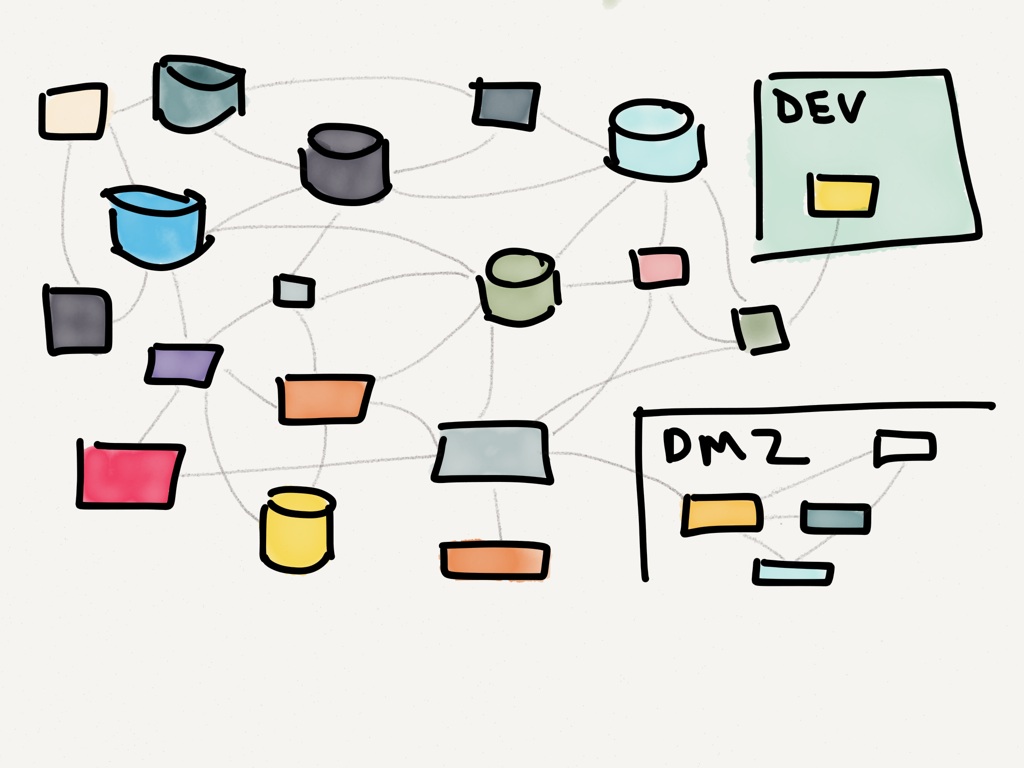 DEV
DMZ